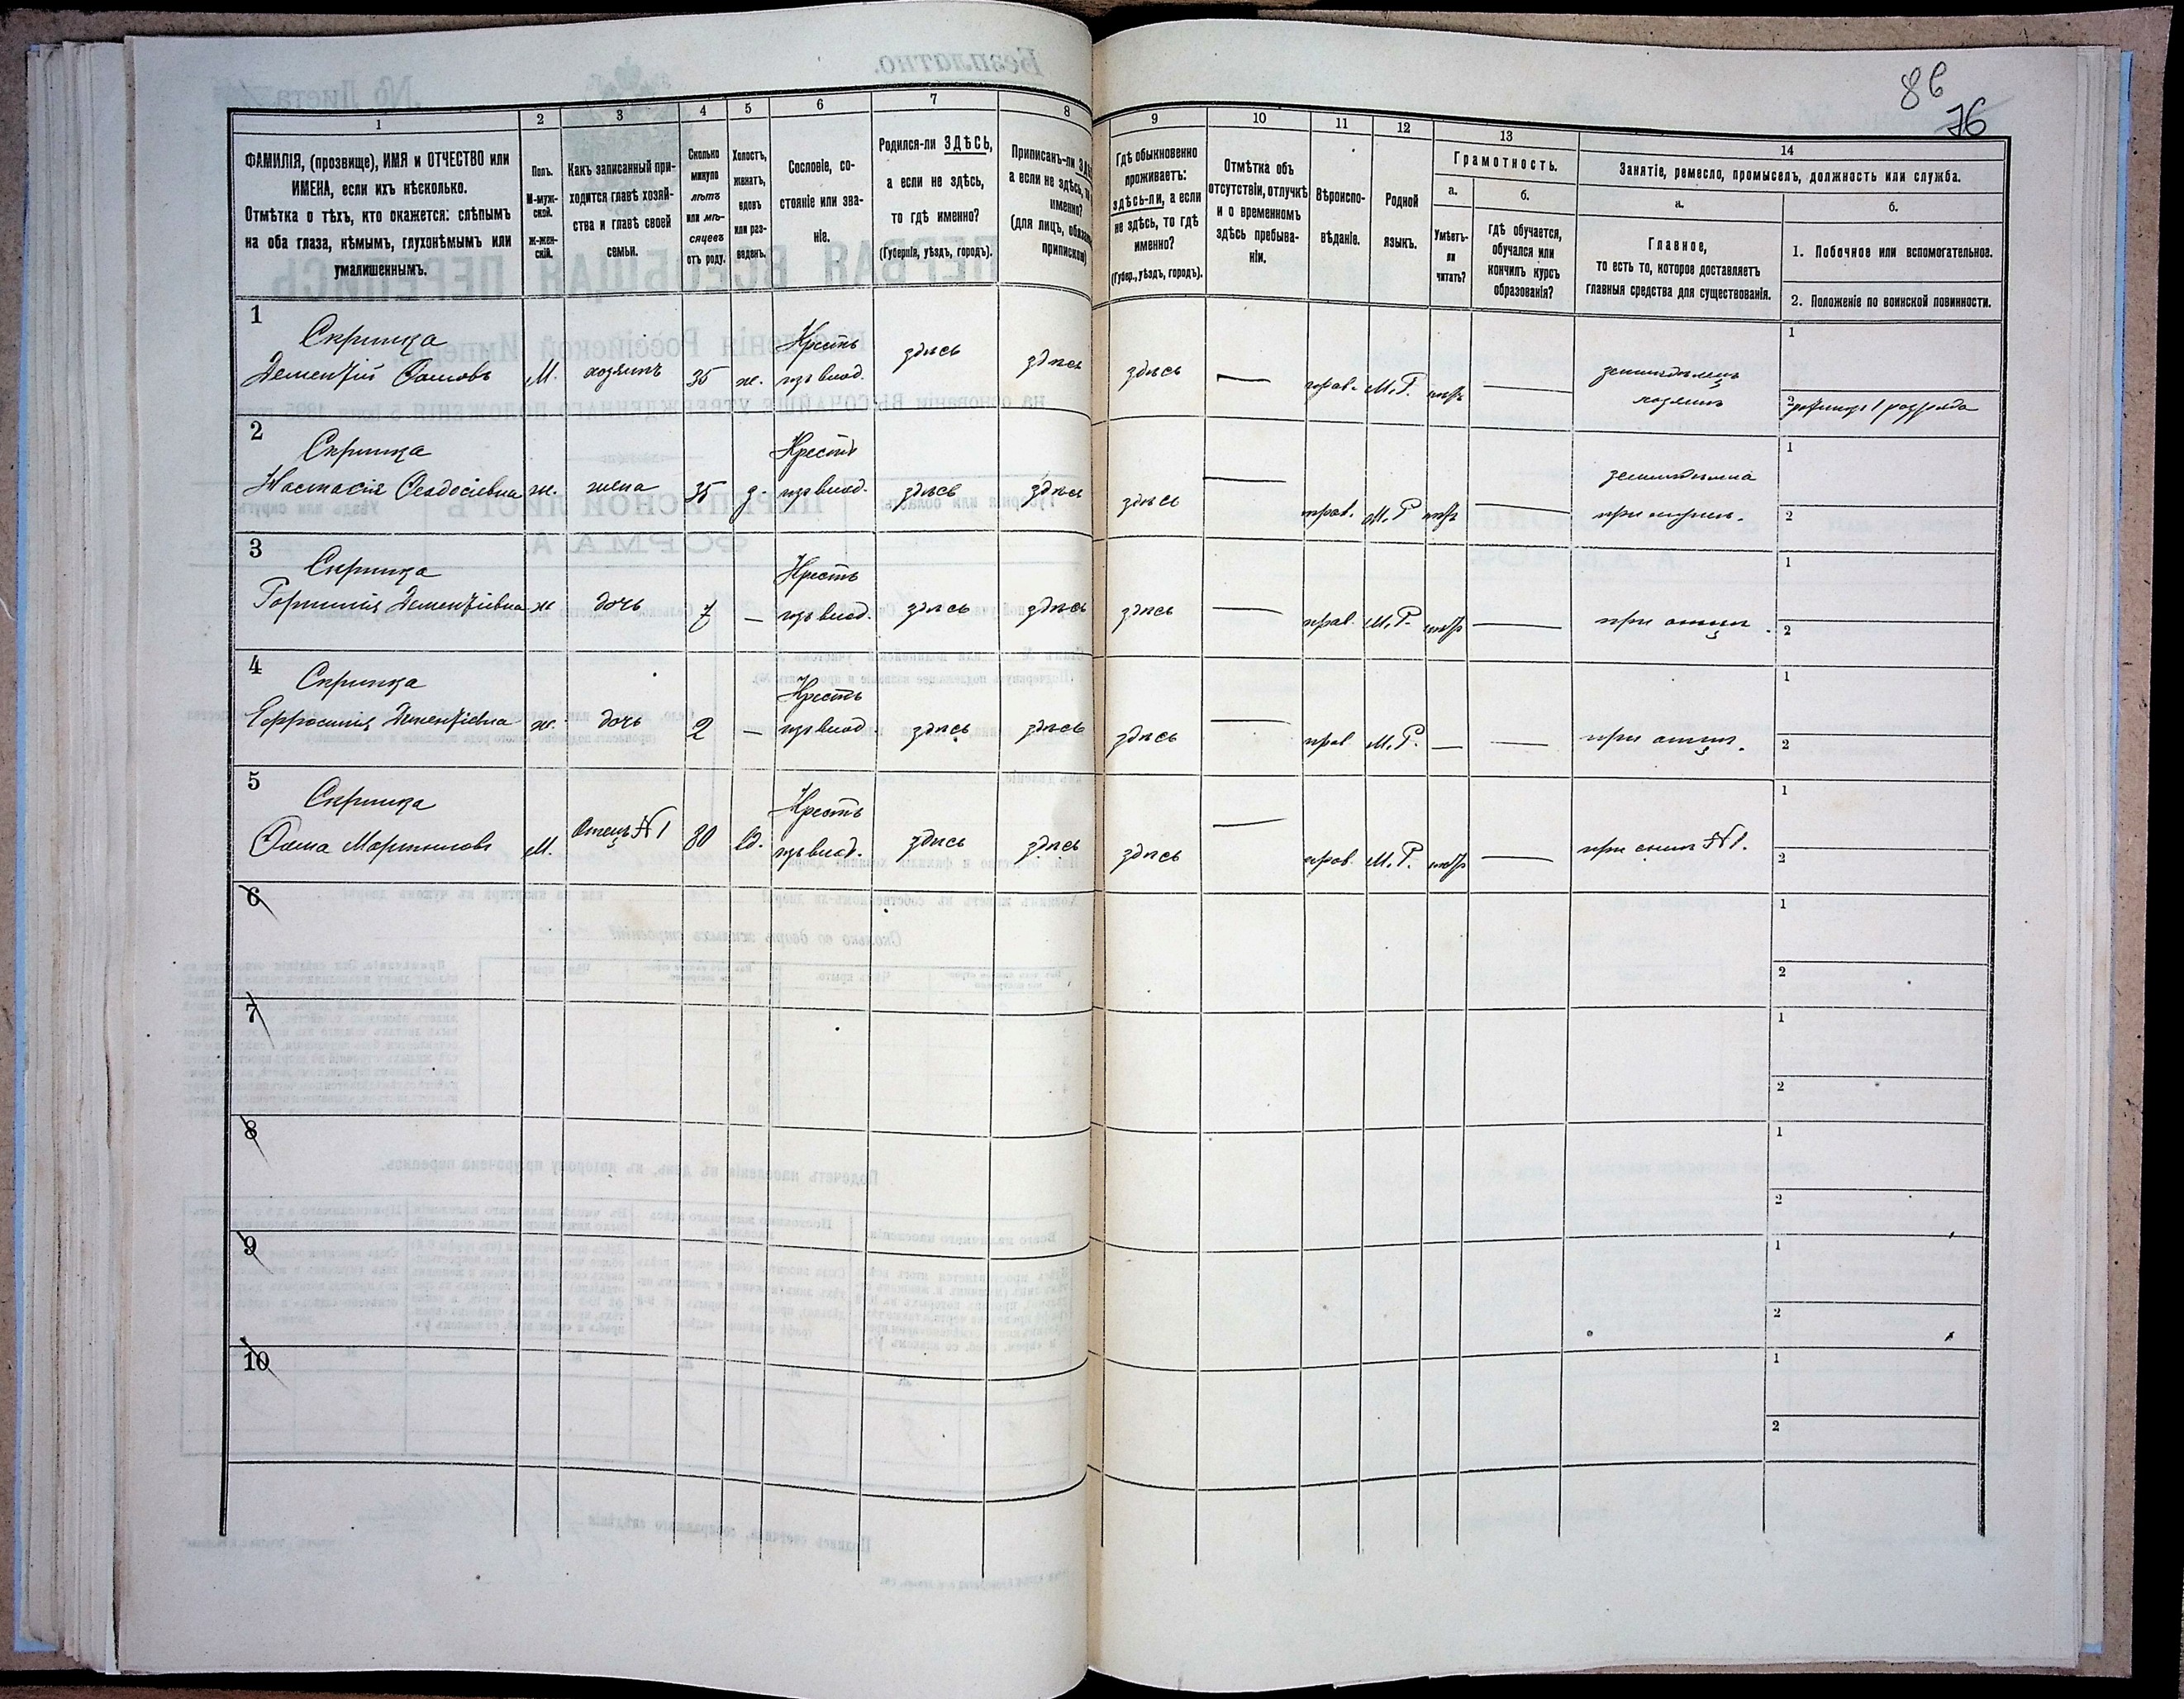 86
76
1
2
3
4
5
6
7
8
9
10
11
12
13
14
ФАМИЛІЯ, (прозвище), ИМЯ и ОТЧЕСТВО или
ИМЕНА, если ихъ нѣсколько.
Отмѣтка о тѣхъ, кто окажется: слѣпымъ
на оба глаза, нѣмымъ, глухонѣмымъ или
умалишеннымъ.
Полъ.
М-муж-
ской.
Ж-жен-
скій.
Какъ записанный при-
ходится главѣ хозяй-
ства и главѣ своей
семьи.
Сколько
минуло
лѣтъ
или мѣ-
сяцевъ
отъ роду.
Холостъ,
женатъ,
вдовъ
или раз-
веденъ.
Сословіе, со-
стояніе или зва-
ніе.
Родился-ли ЗДѢСЬ,
а если не здѣсь,
то гдѣ именно?
(Губернія, уѣздъ, городъ).
Приписанъ-ли
а если не здѣсь,
именно?
(для лицъ,
припискою)
Гдѣ обыкновенно
проживаетъ:
здѣсь-ли, а если
не здѣсь, то гдѣ
именно?
(Губер., уѣздъ, городъ).
Отмѣтка объ
отсутствіи, отлучкѣ
и о временномъ
здѣсь пребыва-
ніи.
Вѣроиспо-
вѣданіе.
Родной
языкъ.
Грамотность.
а.
Умѣетъ-
ли
читать?
б.
гдѣ обучается,
обучался или
кончилъ курсъ
образованія?
Занятіе, ремесло, промыселъ, должность или служба.
а.
Главное,
то есть то, которое доставляетъ
главныя средства для существованія.
б.
1. Побочное или вспомогательное.
2. Положеніе по воинской повинности.
1
Скрипка
Дементій Фомовъ М. хозяинъ 35 ж. Крестъ
изъ влад. здѣсь здѣсь здѣсь — прав. М.Р. нѣтъ — земледѣлецъ
хозяинъ
1
2 ратникъ 1 разряда
2
Скрипка
Настасія Феодосіевна ж. жена 35 з. Крестъ
изъ влад. здѣсь здѣсь здѣсь — прав. М.Р нѣтъ —
при мужѣ.
1
2
3
Скрипка
Дементіевна ж дочь 7 — Крестъ
изъ влад. здѣсь здѣсь здѣсь — прав. М.Р. нѣтъ — при отцѣ.
1
2
4
Скрипка
Ефросинія Дементіевна ж. дочь 2 — Крестъ
изъ влад здѣсь здѣсь здѣсь — прав М.Р. — — при отцѣ.
1
2
5
Скрипка
Фома Мартиновъ М. Отецъ №1 80 вд. Крестъ
изъ влад. здѣсь здѣсь здѣсь — прав. М.Р. нѣтъ — при сынѣ №1.
1
2
6
1
2
7
1
2
8
1
2
9
1
2
10
1
2